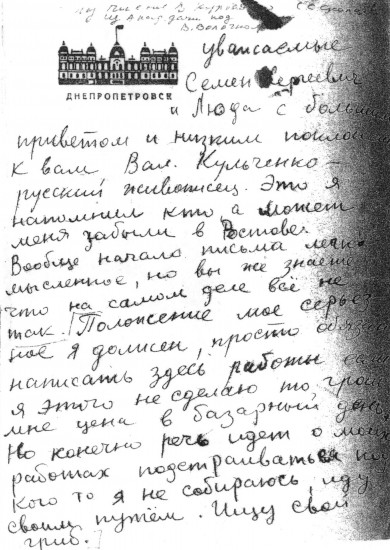 уважаемые
Семен Сергеевич
ДНЕПРОПЕТРОВСК
и Люда с большим
приветом и низким поклоном
к вам, Вал. Кульченко –
русский живописец. Это я
напомнил кто, а может
меня забыли в Ростове.
Вообще начало письма легко-
мысленное, но вы же знаете
что на самом деле всё не
так. Положение мое серьез-
ное я должен, просто обязан
написать здесь работы если
я этого не сделаю то грош
мне цена в базарный день.
Но конечно речь идет о моих
работах подстраиваться под
кого то я не собираюсь, иду
своим путём. Ищу свой
гриб.